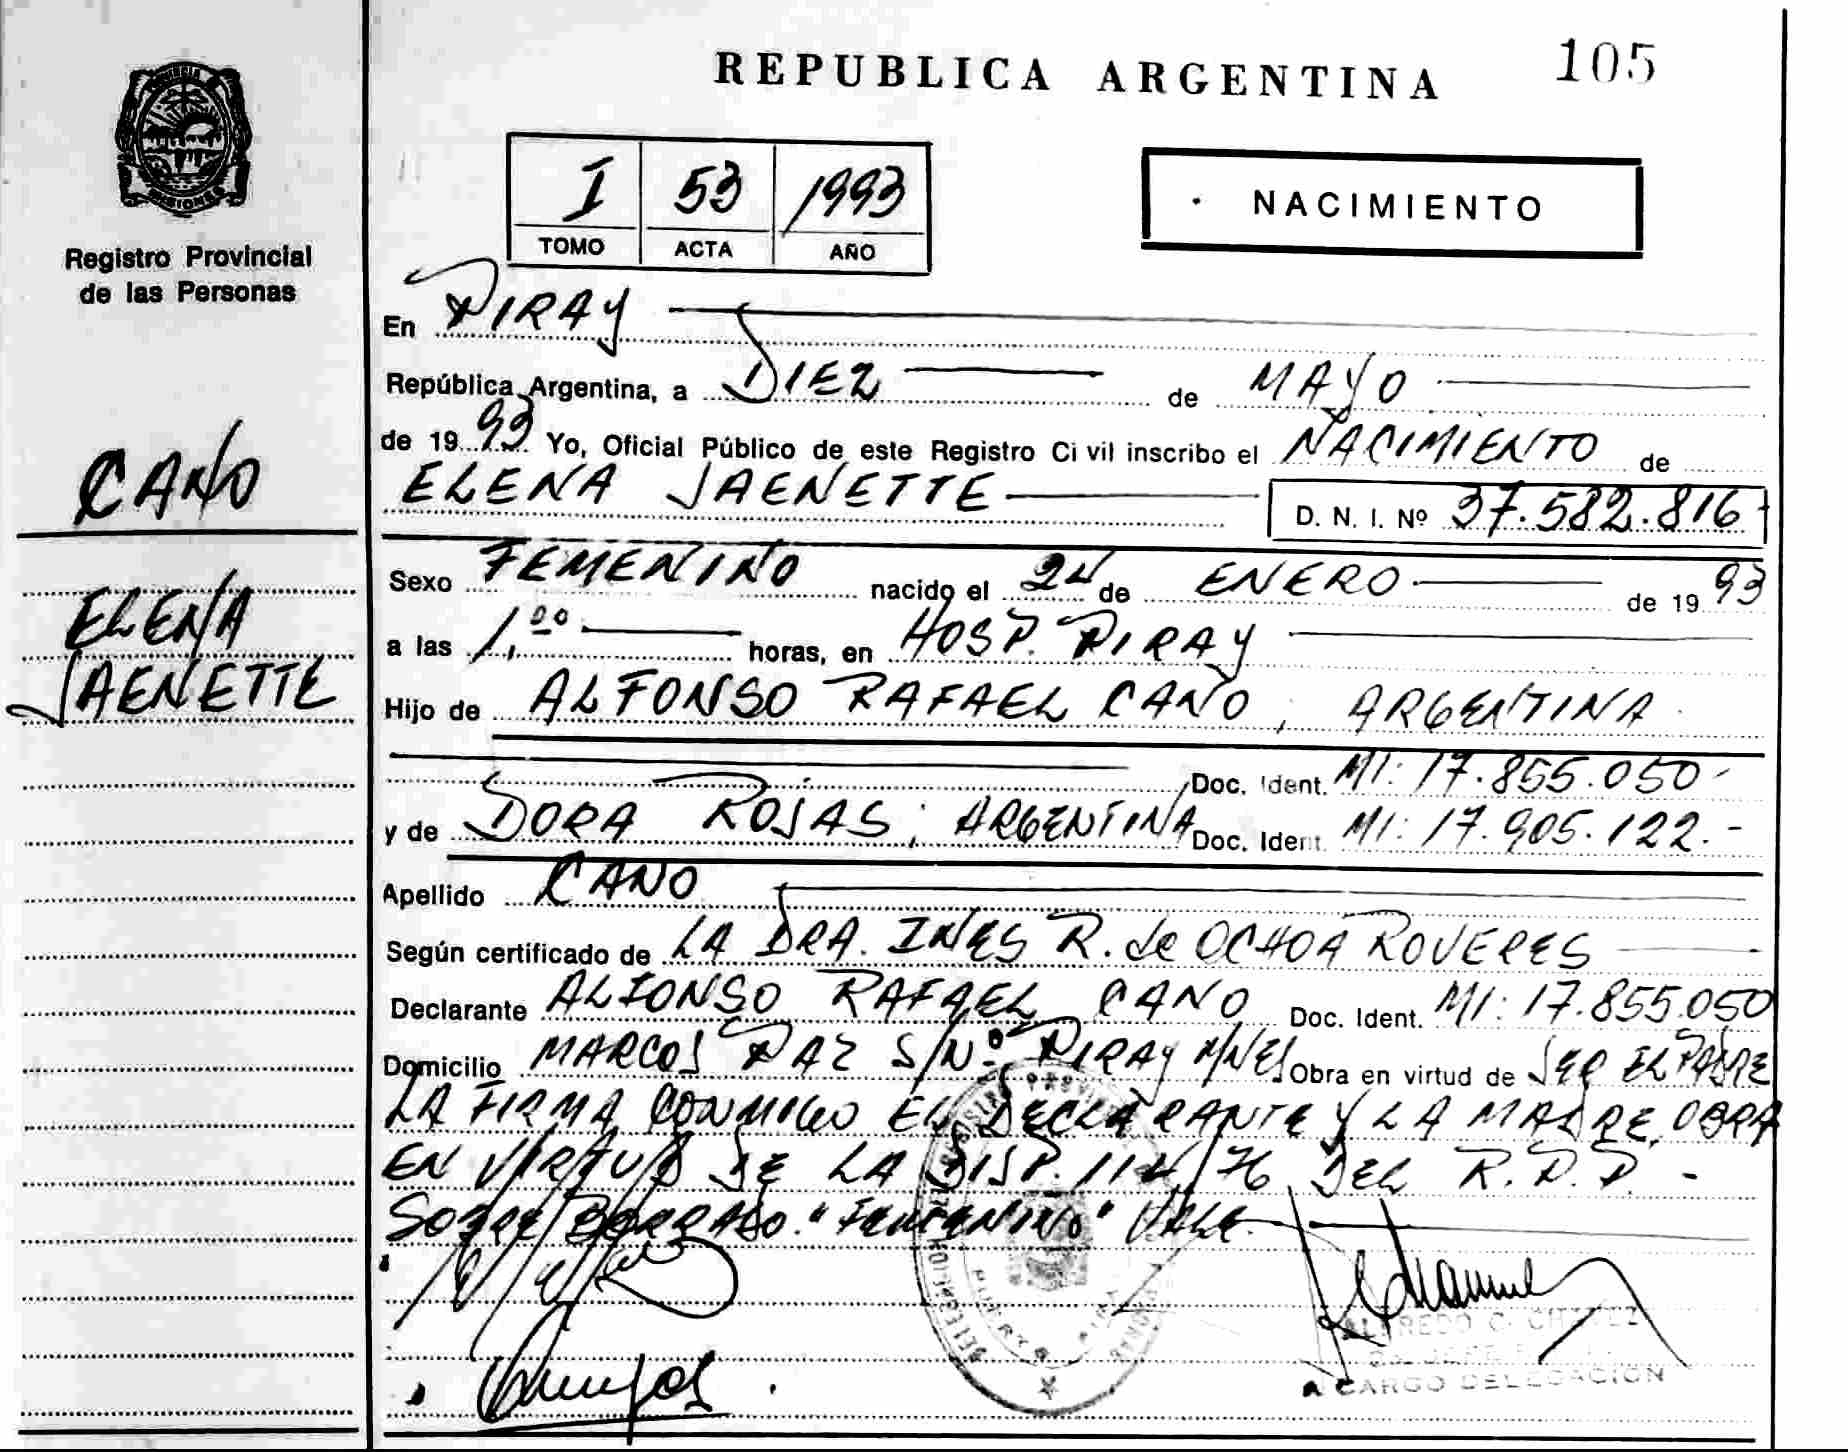 REPUBLICA ARGENTINA
105
MISIONES
Registro Provincial
de las Personas
CANO
ELENA
JAENETTE
I 53 1993
TOMO ACTA AÑO
NACIMIENTO
En PIRAY
República Argentina, a DIEZ de MAYO
de 1993 Yo, Oficial Público de este Registro Civil inscribo el NACIMIENTO de
ELENA JAENETTE D. N. I. Nº 37.582.816
Sexo FEMENINO nacido el 24 de ENERO de 1993
a las 1,00 horas, en HOSP. PIRAY
Hijo de ALFONSO RAFAEL CANO, ARGENTINA
Doc. Ident. MI: 17.855.050-
y de DORA ROJAS, ARGENTINA Doc. Ident. MI: 17.905.122.-
Apellido CANO
Según certificado de LA DRA. INES R. de OCHOA ROVERES
Declarante ALFONSO RAFAEL CANO Doc. Ident. MI: 17.855.050
Domicilio MARCOS PAZ S/Nº PIRAY MNES Obra en virtud de SER EL PADRE
LA FIRMA CONMIGO EL DECLARANTE Y LA MADRE, OBRA
EN VIRTUD DE LA DISP. 114/76 DEL R.P.P. -
SOBRE BORRADO "FEMENINO" VALE.
ALFREDO C. CHAVEZ
A CARGO DELEGACION